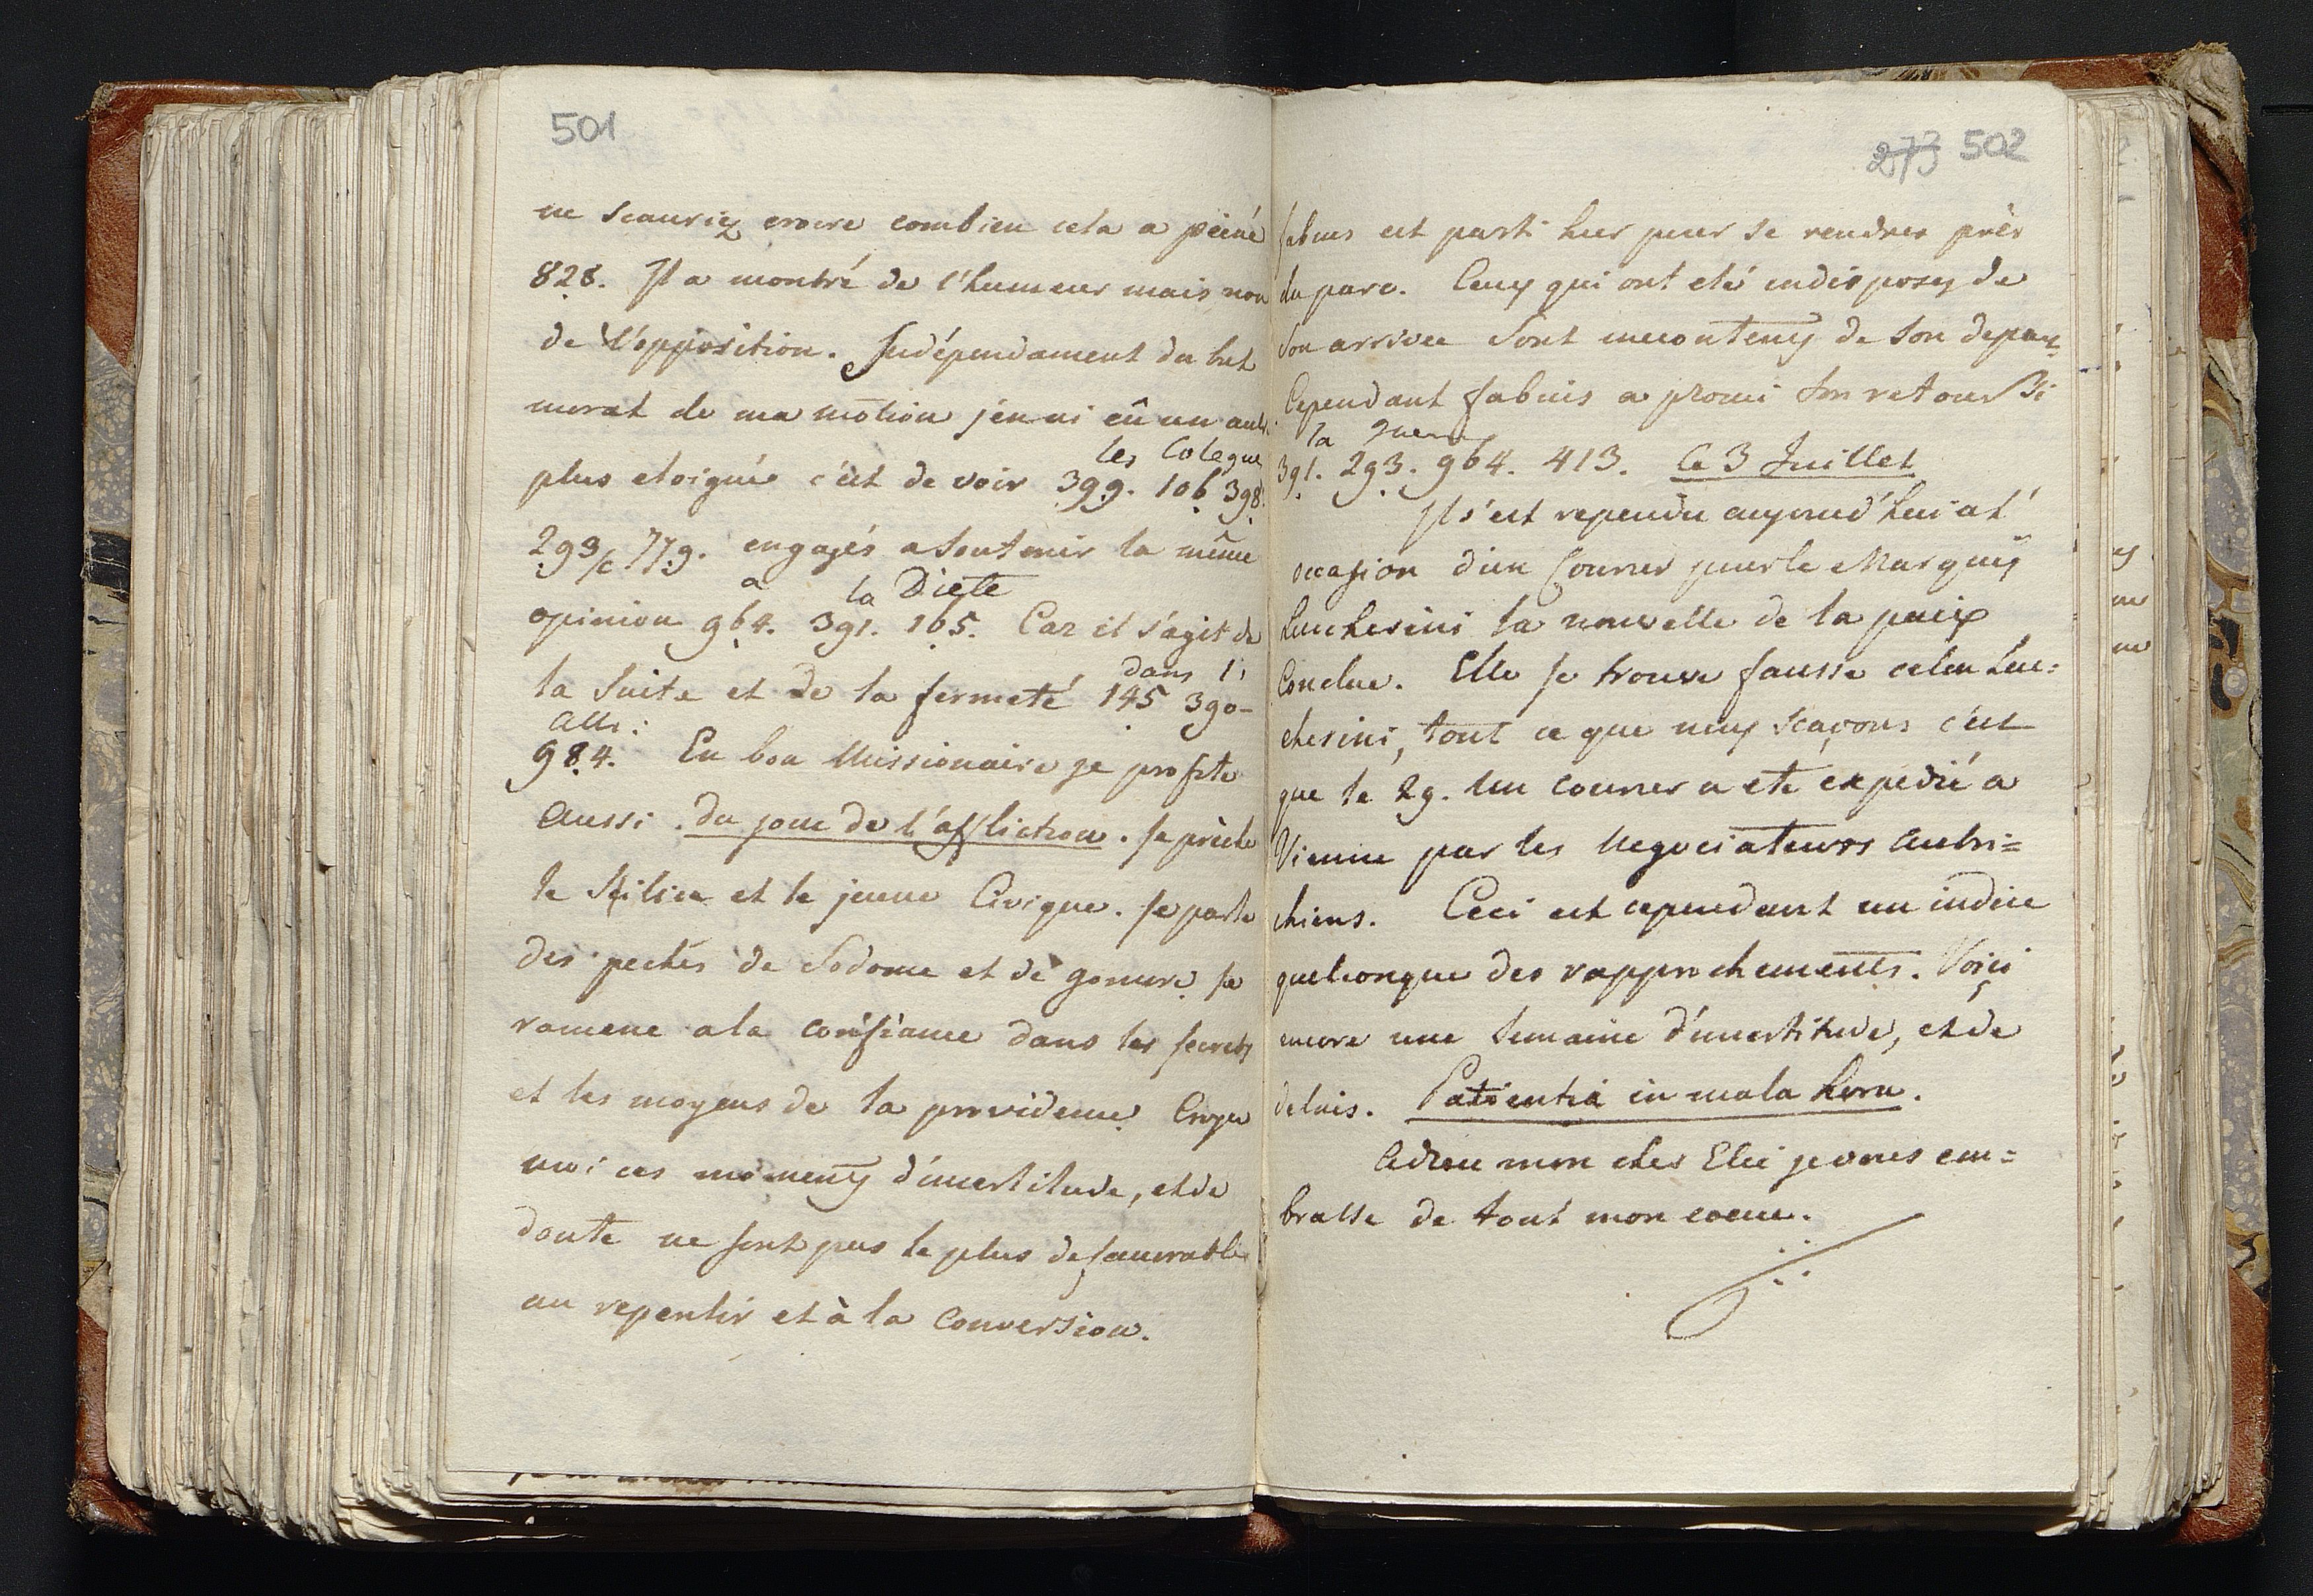 501
ne scauriez croire combien cela a peiné
828. Il a montré de l'humeur mais non
de l'opposition. Indépendament du but
morat de ma motion j'en ai eû un autre
les Colegues
plus eloigné c'est de voir 399. 106 398.
293/c 779. engagés a soutenir la même
a la Diete
opinion 964. 391. 165. Car il s'agit de
la Suite et de la fermeté 145 390-
dans l'
alli:
984. En bon Missionaire je profite
Aussi du jour de l'affliction. Je prèche
le Silice et le jeune Civique. Je parle
des pechés de Sodome et de gomore je
ramene a la confiance dans les secrets
et les moyens de la providence. Croyez
moi ces momens d'incertitude, et de
doute ne sont pas le plus defavorables
au repentir et à la Conversion.
273 502
fabuis est parti hier pour se rendres près
du parc. Ceux qui ont eté indisposez de
Son arrivee Sont mecontens de Son depart
Cependant fabuis a promi Son retour Si
la guerre
391. 293. 964. 413. Ce 3 Juillet
Il s'est rependu aujourd'hui a l'
occasion d'un Courier pour le Marquis
Luchesini la nouvelle de la paix
Conclue. Elle se trouve fausse celon Luc=
chesini, tout ce que nous scavons c'est
que le 29. un courier a ete expedié a
Vienne par les Negociateurs Autri=
chiens. Ceci est cependant un indice
quelconque des rapprochements. Voici
encore une Semaine d'incertitude, et de
delais. Patientia in mala hora.
Adieu mon cher Elie je vous em=
brasse de tout mon coeur.